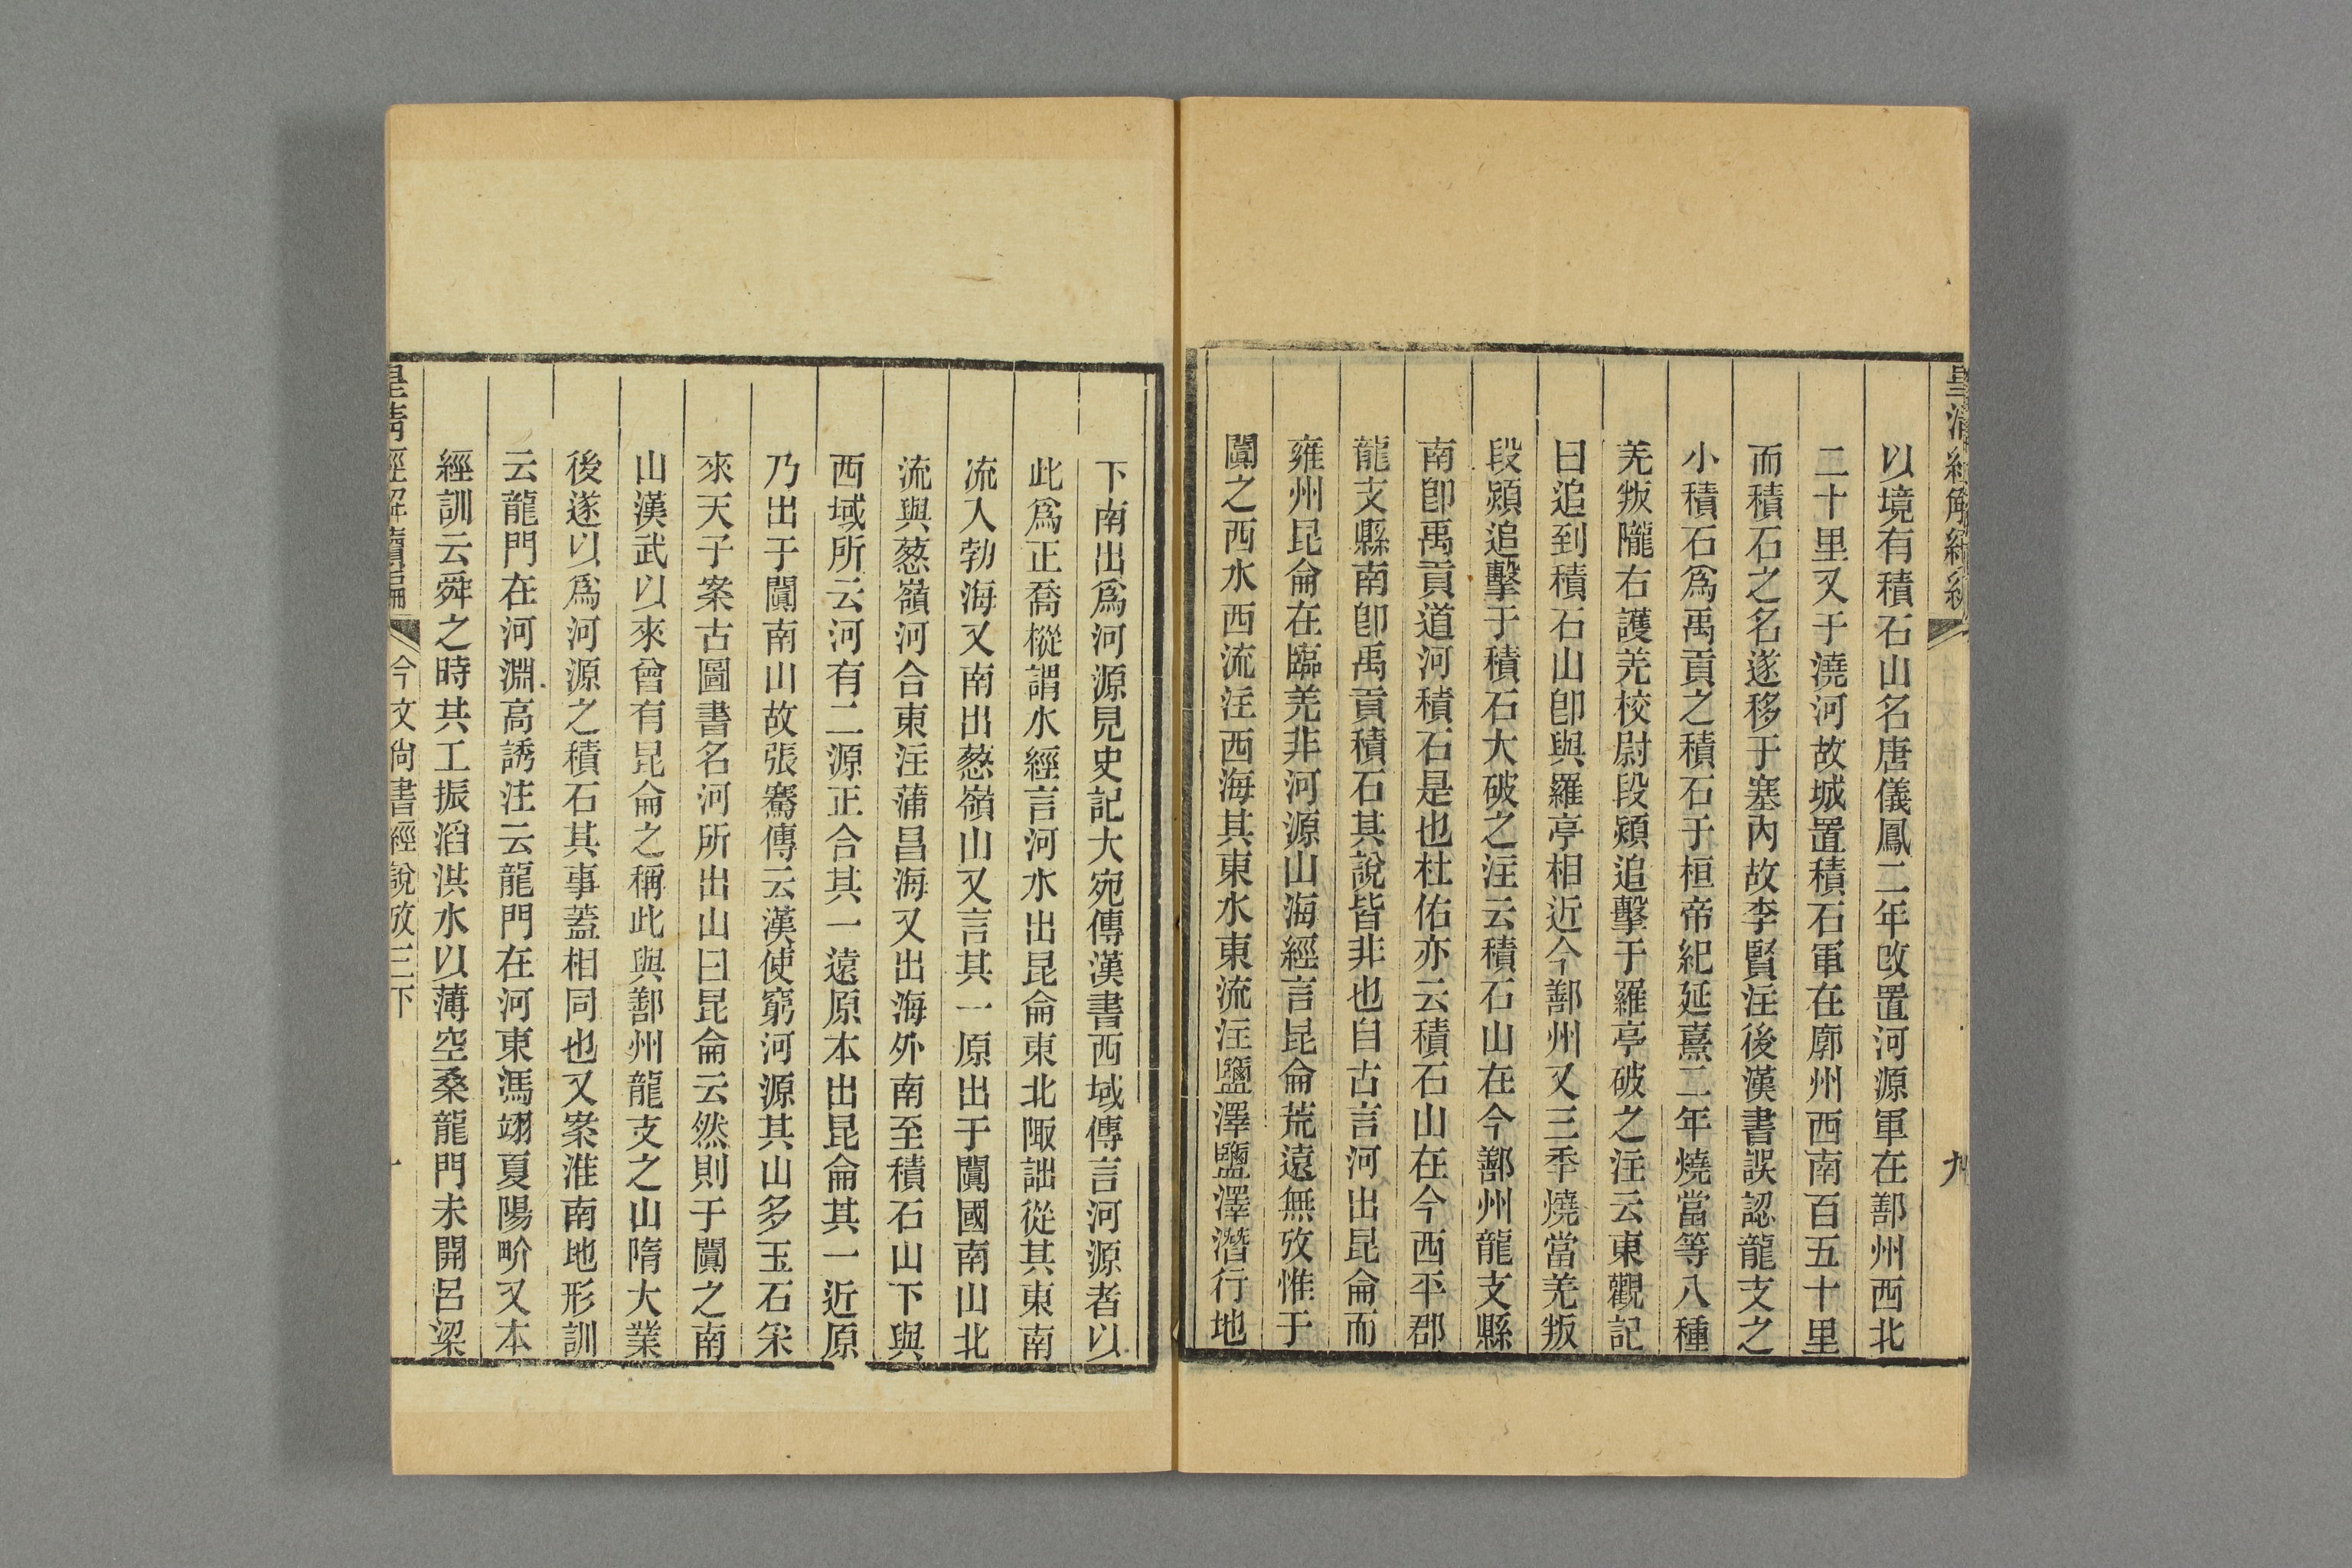 皇清經解續編
九
以境有積石山名唐儀鳳二年改置河源軍在鄯州西北
二十里又于澆河故城置積石軍在廓州西南百五十里
而積石之名遂移于塞內故李賢注後漢書誤認龍支之
小積石爲禹貢之積石于桓帝紀延熹二年燒當等八種
羌叛隴右護羌校尉段熲追擊于羅亭破之注云東觀記
曰追到積石山卽與羅亭相近今鄯州又三秊燒當羌叛
段熲追擊于積石大破之注云積石山在今鄯州龍支縣
南卽禹貢道河積石是也杜佑亦云積石山在今西平郡
龍支縣南卽禹貢積石其說皆非也自古言河出昆侖而
雍州昆侖在臨羌非河源山海經言昆侖荒遠無攷惟于
闐之西水西流注西海其東水東流注鹽澤鹽澤潛行地
下南出爲河源見史記大宛傳漢書西域傳言河源者以
此爲正喬樅謂水經言河水出昆侖東北陬詘從其東南
流入勃海又南出葱嶺山又言其一原出于闐國南山北
流與葱嶺河合東注蒲昌海又出海外南至積石山下與
西域所云河有二源正合其一遠原本出昆侖其一近原
乃出于闐南山故張騫傳云漢使窮河源其山多玉石宷
來天子案古圖書名河所出山曰昆侖云然則于闐之南
山漢武以來曾有昆侖之稱此與鄯州龍支之山隋大業
後遂以爲河源之積石其事蓋相同也又案淮南地形訓
云龍門在河淵高誘注云龍門在河東馮翊夏陽畍又本
經訓云舜之時共工振滔洪水以薄空桑龍門未開呂梁
皇清經解續編
今文尙書經說攷三下